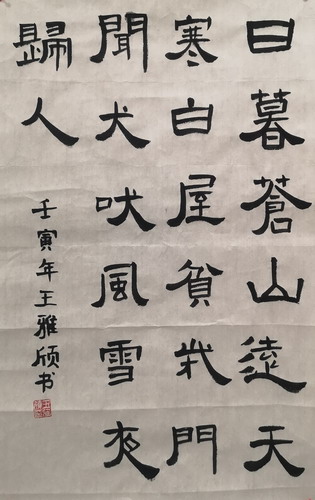 日暮蒼山遠天
寒白屋貧門
聞犬吠風雪夜
歸人
壬寅年王雅颀书